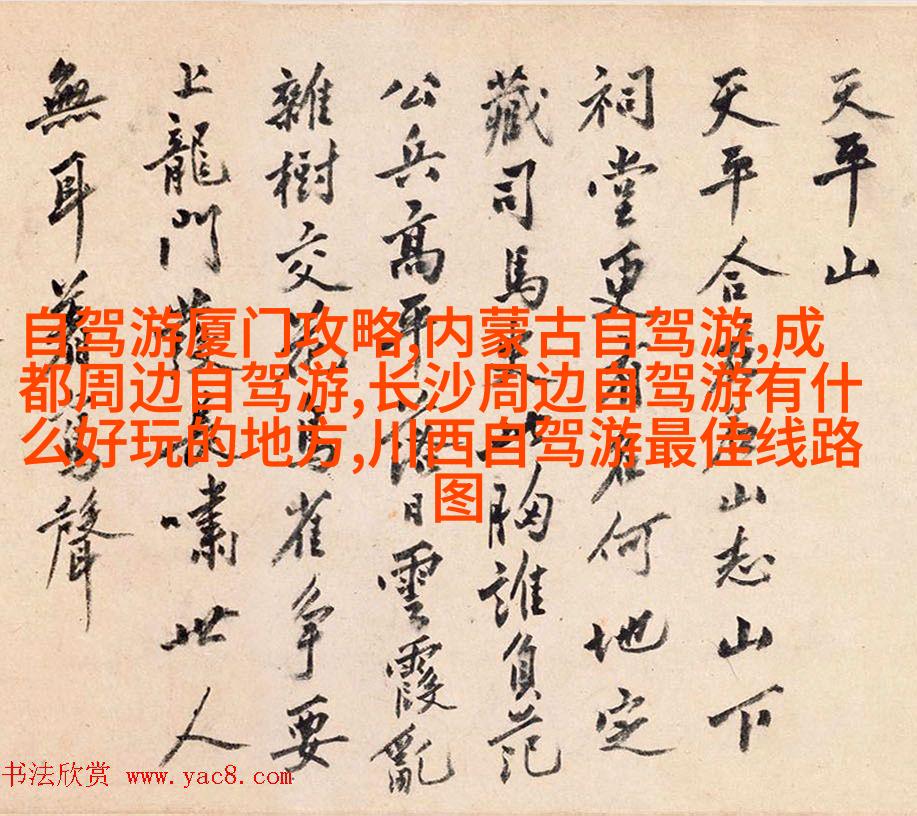 天平山
天平合山志山下
祠堂更有名何地定
藏司馬史此胸誰負范
公兵高平落日雲霞亂
雜樹交鳥雀爭要
上龍門發長嘯世人
無耳著聲
自驾游厦门攻略,内蒙古自驾游,成
都周边自驾游,长沙周边自驾游有什
么好玩的地方,川西自驾游最佳线路
图
书法欣赏 www.yac8.com